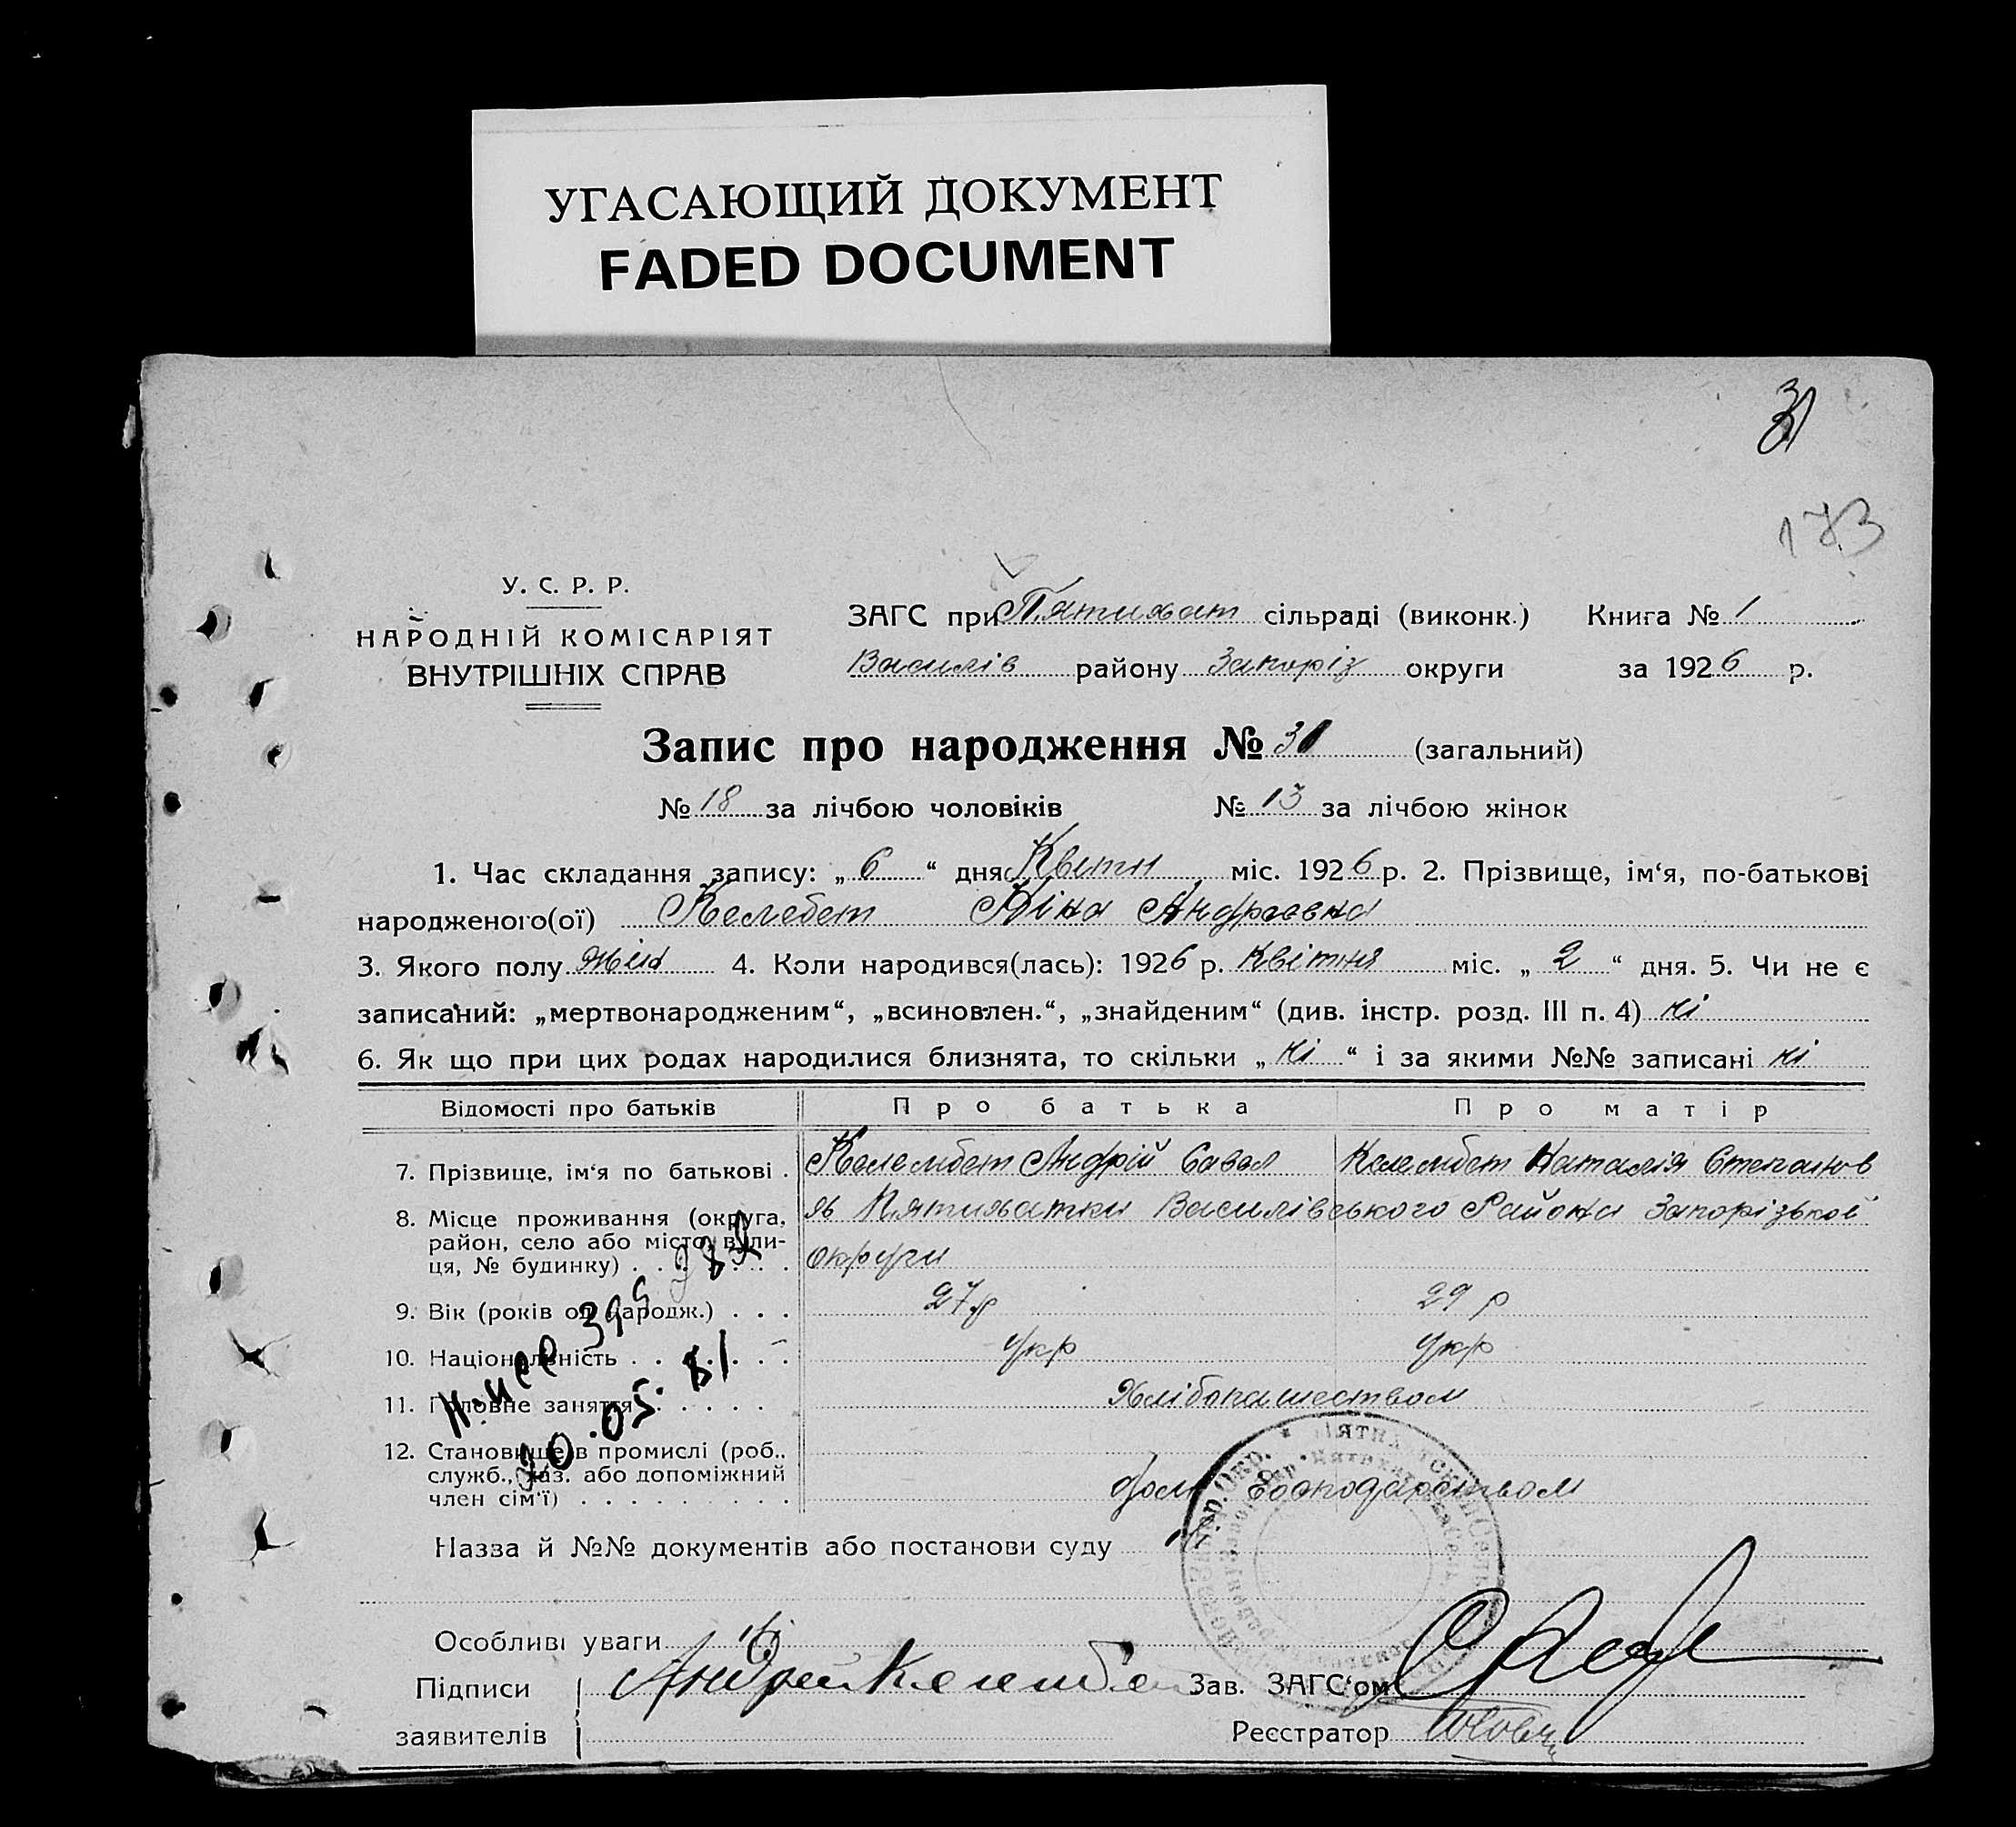 УГАСАЮЩИЙ ДОКУМЕНТ
FADED DOCUMENT
31
173
У. С. Р. Р.
НАРОДНІЙ КОМІСАРІЯТ
ВНУТРІШНІХ СПРАВ
ЗАГС при Пятихат сільраді (виконк.) Книга № 1
Василів району Запоріз округи за 1926 р.
Запис про народження № 31 (загальний)
№ 18 за лічбою чоловіків № 13 за лічбою жінок
1. Час складання запису: „ 6 “ дня Квітн міс. 1926 р. 2. Прізвище, ім‘я, по-батькові
народженого(ої) Келебет Ніна Андреевна
3. Якого полу жін 4. Коли народився(лась): 1926 р. Квітня міс. „ 2 “ дня. 5. Чи не є
записаний: „мертвонародженим“, „всиновлен.“, „знайденим“ (див. інстр. розд. III п. 4) ні
6. Як що при цих родах народилися близнята, то скільки „ ні “ і за якими №№ записані ні
Відомості про батьків Про батька Про матір
7. Прізвище, ім‘я по батькові . Келембет Андрій Савел Келембет Наталія Степанов
8. Місце проживання (округа, район, село або місто, вулиця, № будинку) . . . Пятихатки Василівського Района Запорізької
округи
9. Вік (років од народж.) . . . 27 р 29 р
10. Національність . . . . . . . укр укр
11. Головне заняття . . . . . . Хлібопашеством
12. Становище в промислі (роб..
служб., хаз. або допоміжний
член сім‘ї) . . . . . . . . . дом Господарством
20.05.81
Назва й №№ документів або постанови суду
Особливі уваги
Підписи Андрей Келембет Зав. ЗАГС‘ом
заявителів Реєстратор